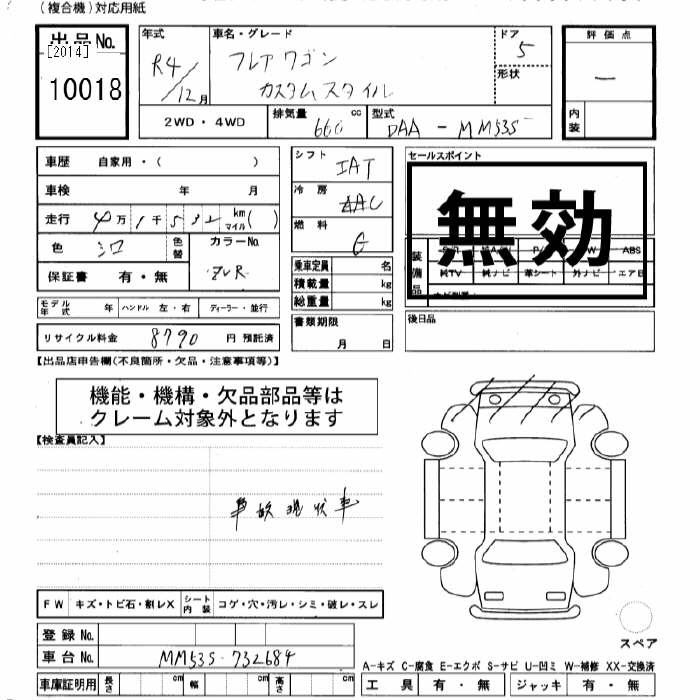 (複合機)対応用紙
出品No.
[2014]
10018
年式
R4/12月
車名・グレード
フレアワゴン
カスタムスタイル
ドア
5
形状
評価点
内装
2WD・4WD
排気量 660 cc
型式 DAA-MM53S
車歴 自家用・( )
車検 年 月
走行 4万1千532 km マイル( )
色 シロ 色替
カラーNo. ZVR
保証書 有・無
モデル年式 年 ハンドル 左・右 ディーラー・並行
リサイクル料金 8790 円 預託済
シフト IAT
冷房 AAC
燃料 G
乗車定員 名
積載量 kg
総重量 kg
書類期限
月 日
セールスポイント
無効
装備品
ABS
純TV 純ナビ 革シート 外ナビ エアB
後日品
【出品店申告欄(不良箇所・欠品・注意事項等)】
機能・機構・欠品部品等は
クレーム対象外となります
【検査員記入】
事故現状車
FW キズ・トビ石・割レX シート内装 コゲ・穴・汚レ・シミ・破レ・スレ
登録No.
車台No. MM53S-732684
車庫証明用 長さ cm 幅 cm 高さ cm
スペア
A-キズ C-腐食 E-エクボ S-サビ U-凹ミ W-補修 XX-交換済
工具 有・無 ジャッキ 有・無